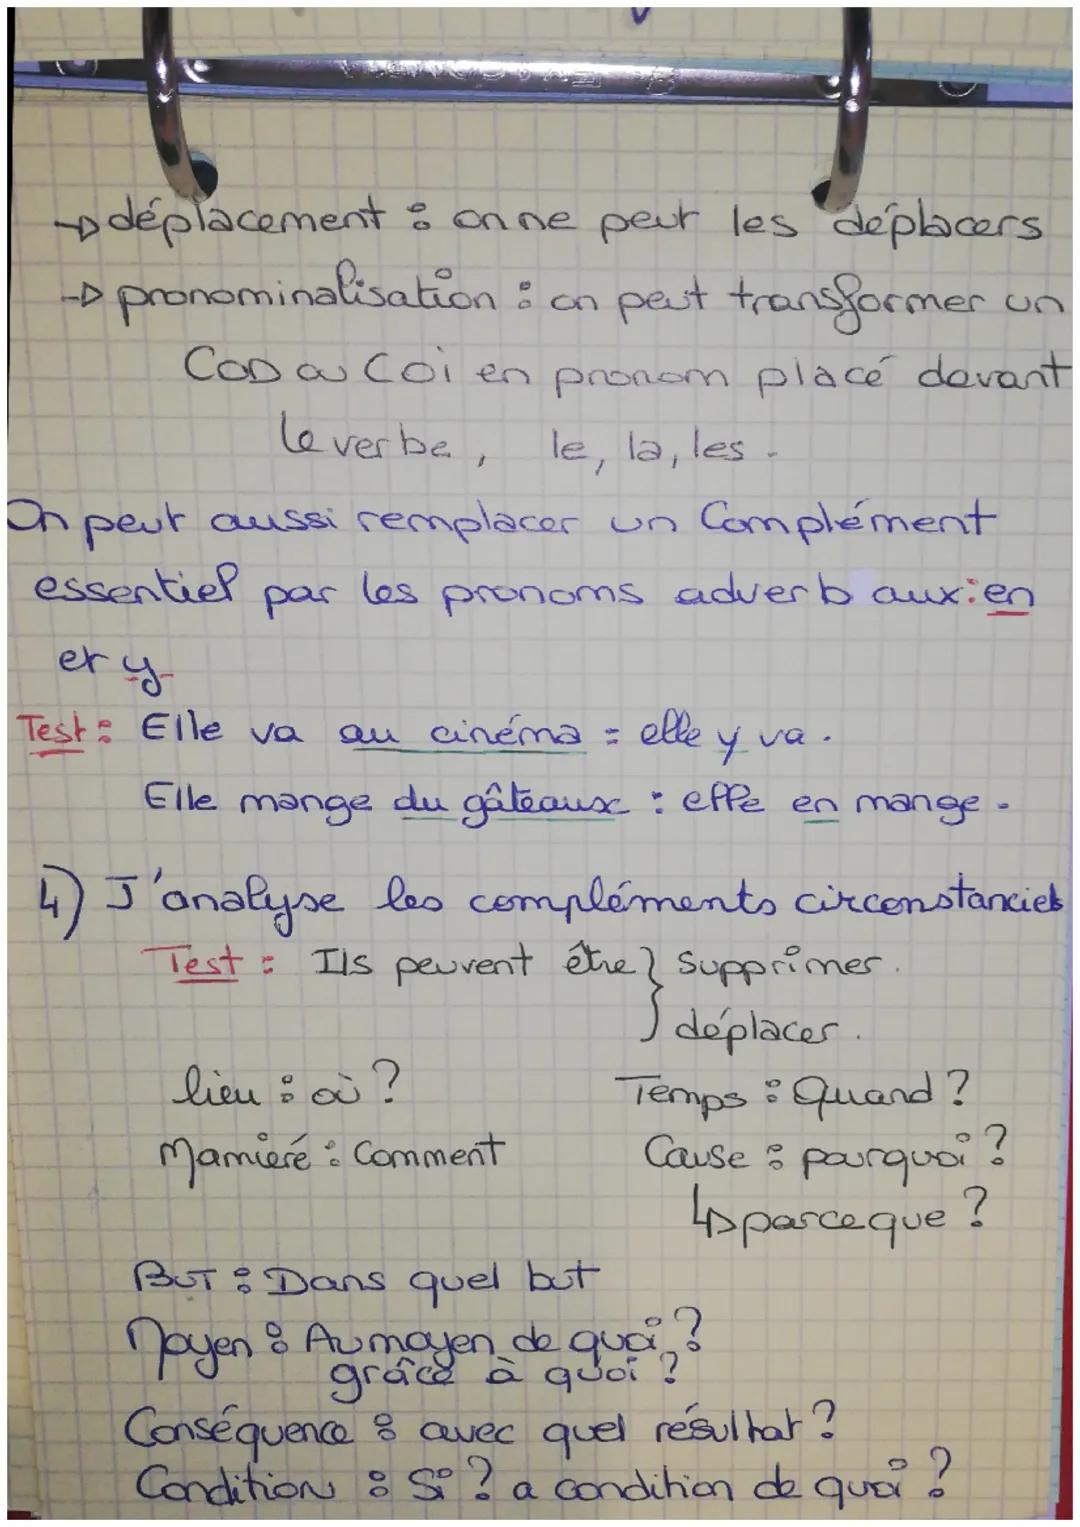 → déplacement : on ne peut les déplacers
→ pronominalisation : on peut transformer un
COD ou COi en pronom placé devant
le verbe, le, la, les.
On peut aussi remplacer un Complément
essentiel par les pronoms adverbaux : en
et y
Test : Elle va au cinéma = elle y va.
Elle mange du gâteaux : elle en mange.
4) J'analyse les compléments circonstanciels
Test : Ils peuvent être } supprimer.
déplacer.
lieu : où ? Temps : Quand ?
Mamieré : Comment Cause : pourquoi ?
↳ parceque ?
BUT : Dans quel but
Moyen : Au moyen de quoi ?
grâce à quoi ?
Conséquence : avec quel résultat ?
Condition : Si ? a condition de quoi ?